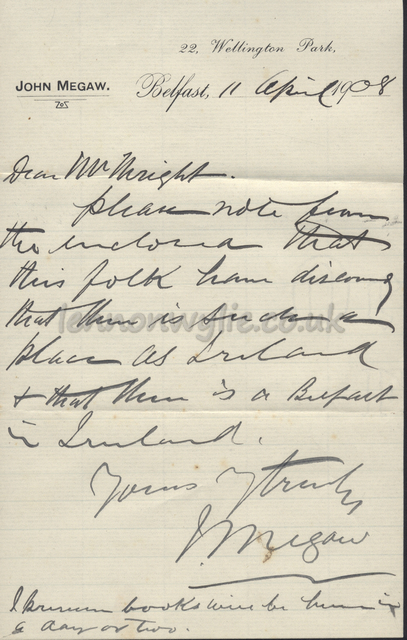 22, Wellington Park,
JOHN MEGAW.
Belfast, 11 April 1908
Dear Mr Wright.
please note from
the enclosed that
this folk have discovered
that there is such a
place as Ireland
& that there is a Belfast
in Ireland.
Yours truly
J Megaw
I presume books will be here in
a day or two.
lennonwylie.co.uk